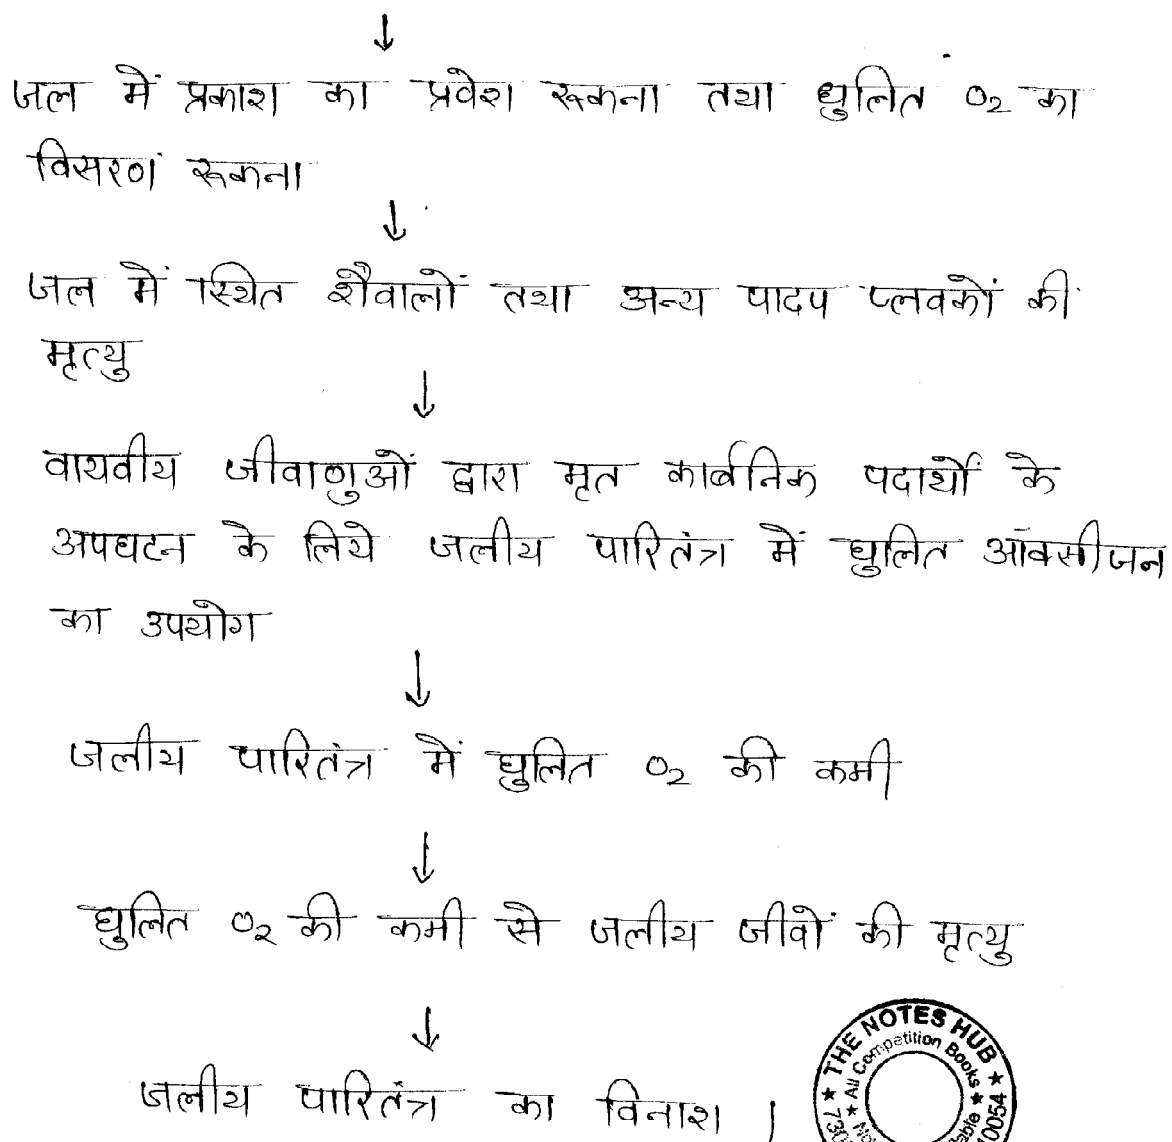 ↓
जल में प्रकाश का प्रवेश रूकना तथा घुलित O₂ का
विसरण रूकना
↓
जल में स्थित शैवालों तथा अन्य पादप प्लवकों की
मृत्यु
↓
वायवीय जीवाणुओं द्वारा मृत कार्बनिक पदार्थों के
अपघटन के लिये जलीय पारितंत्र में घुलित ऑक्सीजन
का उपयोग
↓
जलीय पारितंत्र में घुलित O₂ की कमी
↓
घुलित O₂ की कमी से जलीय जीवों की मृत्यु
↓
जलीय पारितंत्र का विनाश ।
THE NOTES HUB
All Competition Books